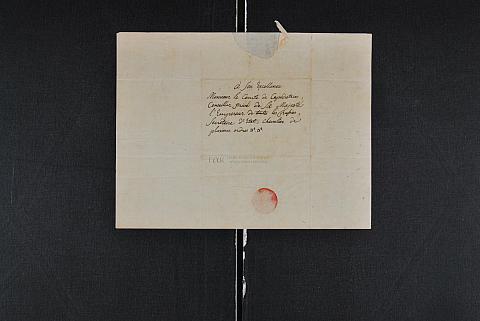 à Son Excellence
Monsieur le Comte de Capodistrias,
Conseiller privé de Sa Majesté
l'Empereur de toutes les Russies,
Secrétaire d'Etat, chevalier de
plusieurs ordres &c &c